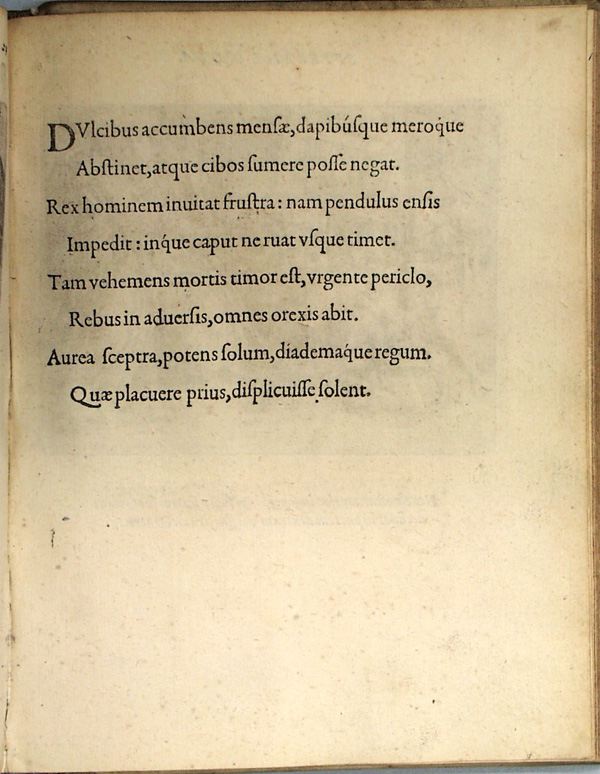 DVlcibus accumbens mensæ, dapibúsque meroq́ue
Abstinet, atque cibos sumere posse negat.
Rex hominem inuitat frustra: nam pendulus ensis
Impedit: inq́ue caput ne ruat vsque timet.
Tam vehemens mortis timor est, vrgente periclo,
Rebus in aduersis, omnes orexis abit.
Aurea sceptra, potens solum, diademaq́ue regum.
Quæ placuere prius, displicuisse solent.